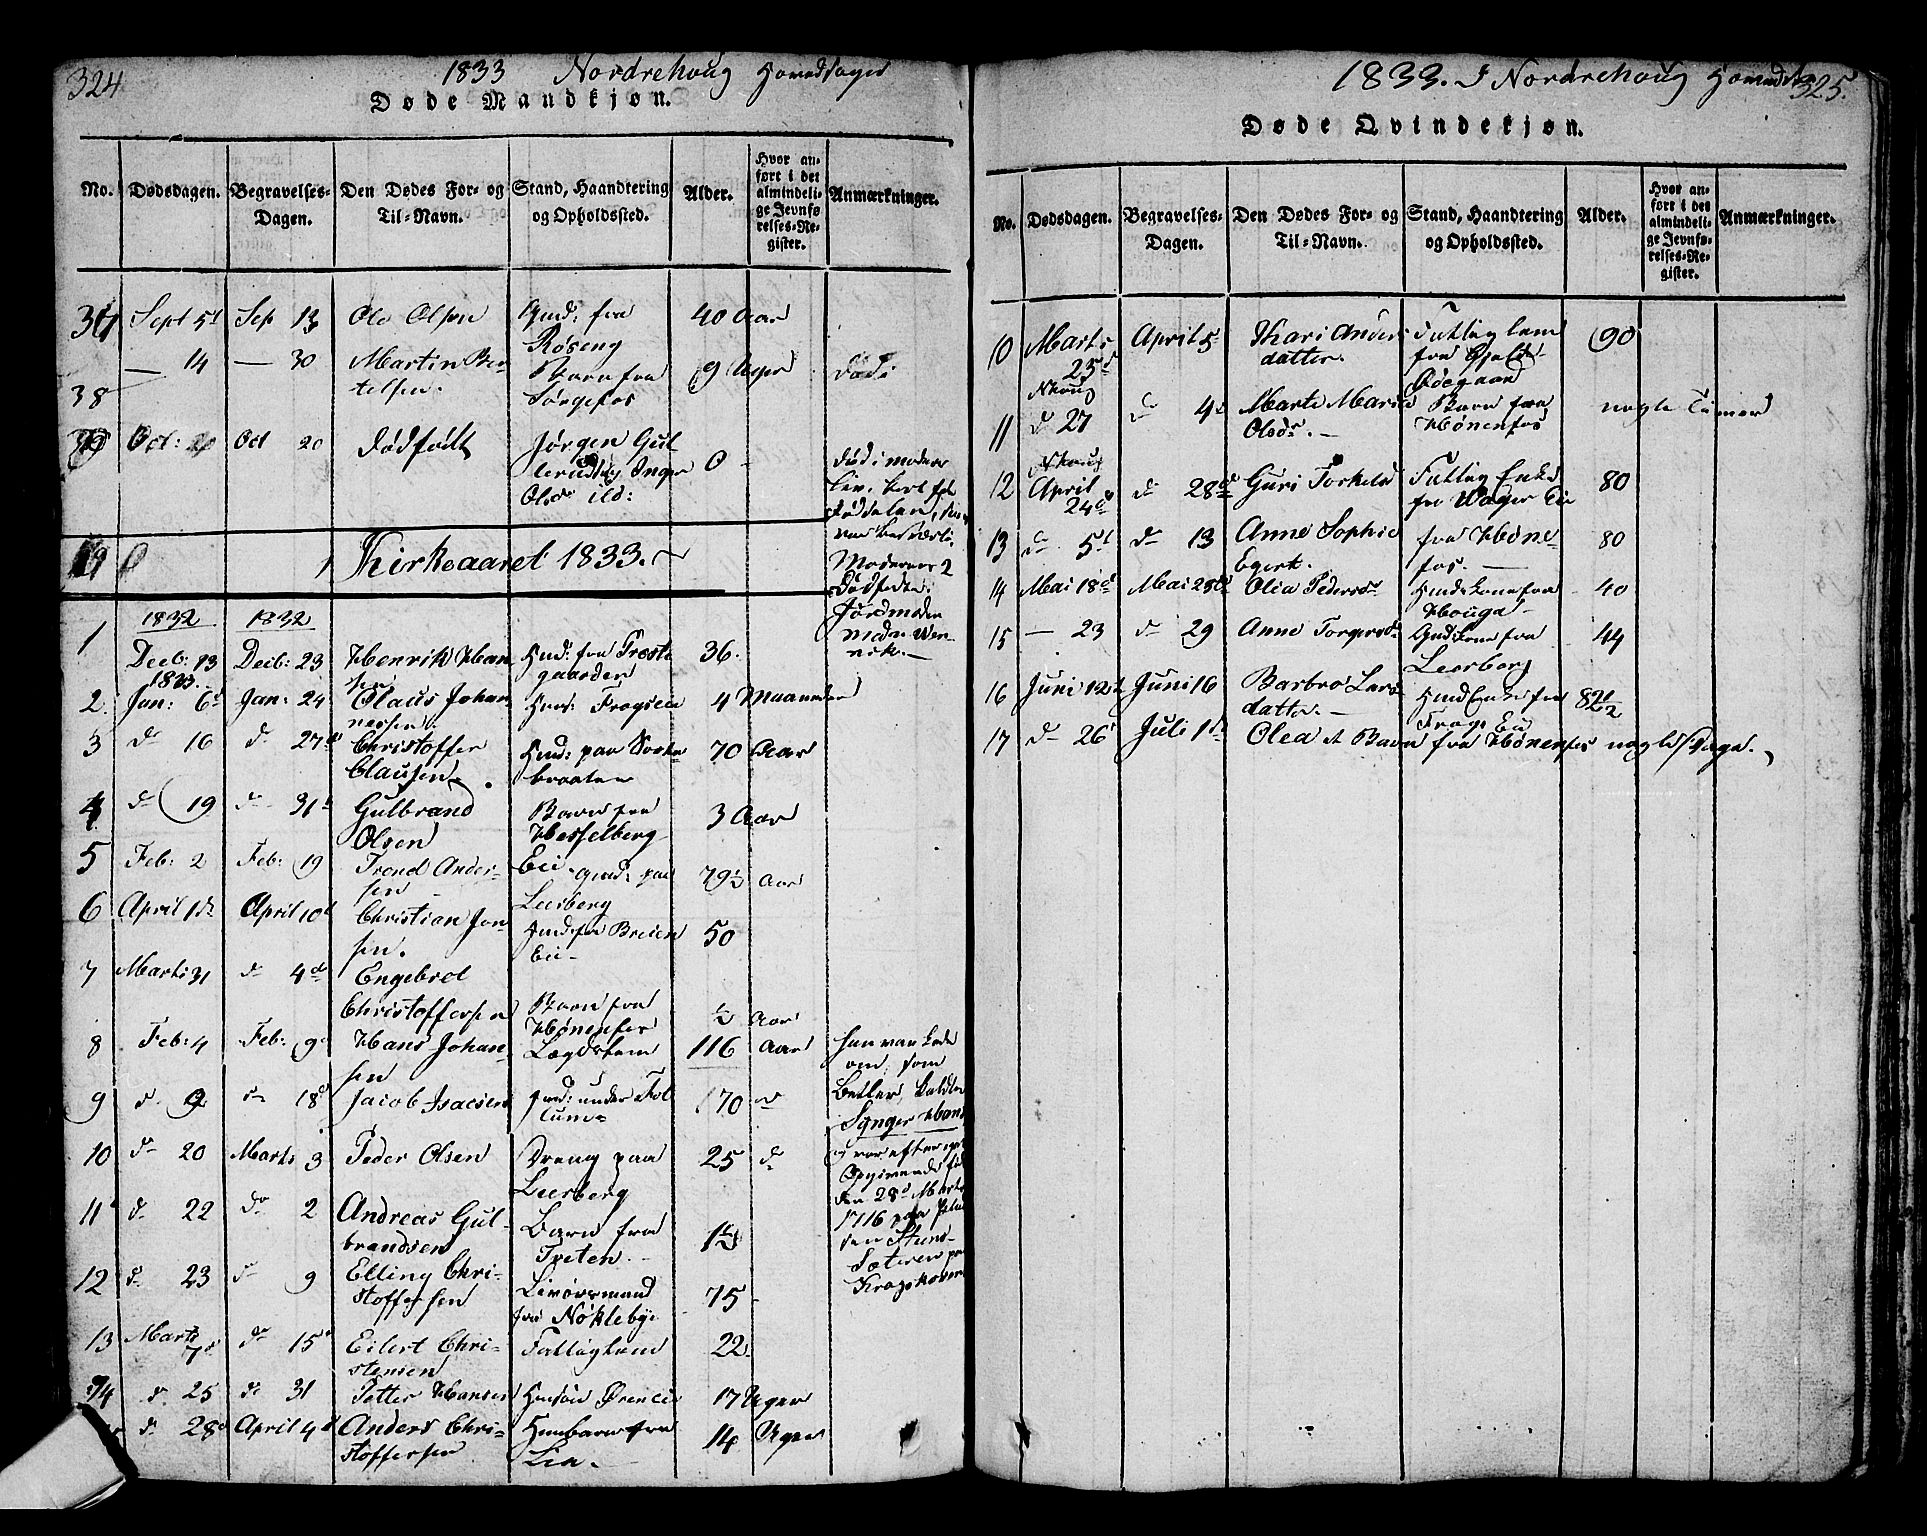 324
1833 Nordrehoug Hovedsogn
Døde Mandkjøn.
No. Dødsdagen. Begravelses-Dagen. Den Dødes For- og Til-Navn. Stand, Haandtering og Opholdssted. Alder. Hvor anført i det almindelige Jevnførelses-Register. Anmærkninger.
37 Sept 5t Sep 13 Ole Olsen Gmd: fra Røseng 40 Aar
38 — 14 — 30 Martin Bertelsen. Barn fra Sørgefos 9 Uger
39 Oct: Oct 20 Dødfødt Jørgen Gulbrands Inger Olsd 0 -
Død i moders
Liv,
Moderens 2
Dødfødte.
Jordmoder
Kirkeaaret 1833.
1832 1832
1 Decb: 13 Decb: 23 Henrik Hansen Hmd: fra Prestegaarden 36.
1833.
2 Jan: 6t Jan: 24 Claus Johannessen Frogseie 4 Maaneder
3 d 16 d 27d Christoffer Clausen Hmd: paa braaten 70 Aar
4 d 19 d 31t Gulbrand Olsen Barn fra Hesselberg 3 Aar
5 Feb: 2 Feb: 19 Trond Andersen Eie Gmd: paa Leerberg 79½ Aar
6 April 1ste April 10d Christian Jonsen. Hmd fra Breien Eie 50
7 Marts 31 d 4d Engebret Christoffersen Barn fra Hønenfos ½ Aar
8 Feb: 4 Feb: 9d Hans Johansen Lægdslem 116 Aar
9 d 9 d 18d Jacob Isacsen Hmd: under Follum 70 d
10 d 20 Marts 3 Peder Olsen Dreng paa Leerberg 25 d
11 d 22 do 2 Andreas Gulbrandsen Barn fra Tveten 1½
12 d 23 d 9 Elling Christoffersen Livøresmand fra Nøkleby 75
13 Marts 7d d 15d Eilert Christensen Fattiglem 22
14 d. 25 d 31 Petter Hansen Hussøn Øreneie 17 Uger
d. 28d April 4d Anders Christoffersen Huusbarn fra Lia. 14 Uger
han var
om, som
Betler, kaldte
Synger Hans
var efter eget
Opgivende født
den 28d Marts
1716 paa
Sæteren paa
Krogskoven
1833. I Nordrehoug Hovedsogn
325.
Døde Qvindekjøn.
No. Dødsdagen. Begravelses-Dagen. Den Dødes For- og Til-Navn. Stand, Haandtering og Opholdssted. Alder. Hvor anført i det almindelige Jevnførelses-Register. Anmærkninger.
10 Marts 25d April 5 Kari Andersdatter. Fattiglem fra Ødegaard 90
11 d 27 d 4d Marte Marie Olsdr. Barn fra Hønenfos nogle Timer
12 April 24d d 28d Guri Torkelsd Fattig Enke fra Wager Eie 80
13 d 5t d 13 Anne Sophie Egert. fra Hønefos. 80
14 Mai 18d Mai 28d Olia Pedersd Huuskone fra Houga 40
15 — 23 d 29 Anne Torgersd. Gmdkone fra Leerberg 44
16 Juni 12t Juni 16 Barbro Larsdatter. Hmd Enke fra Frogs Eie 82½
17 d 26t Juli 1ste Olea et Barn fra Hønenfos nogle Dage.